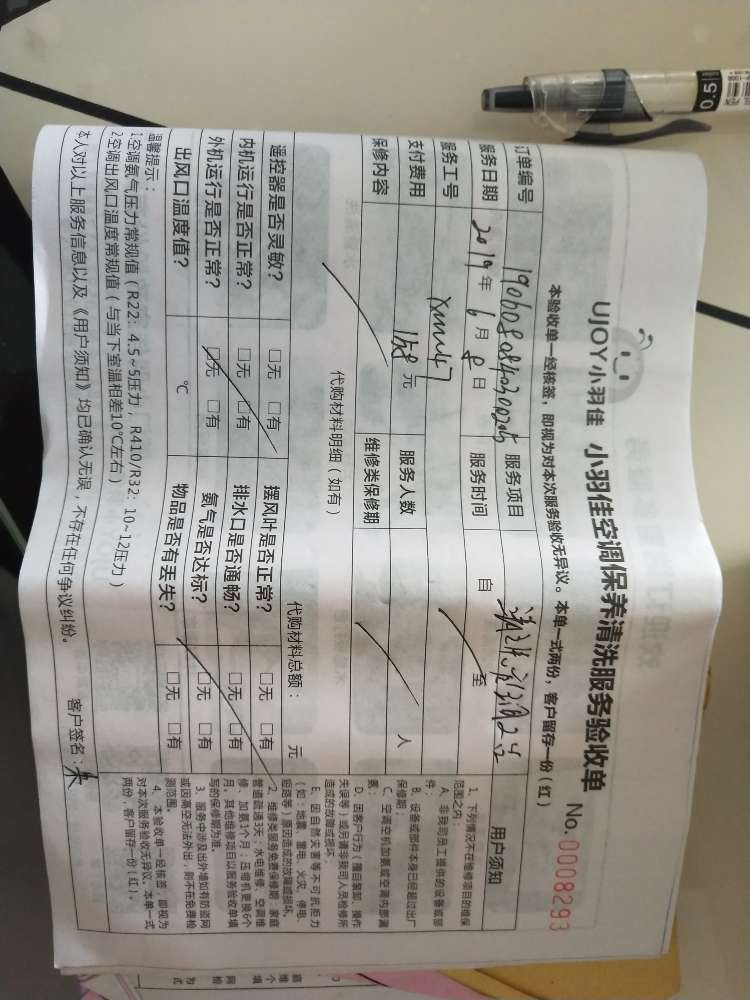 UJOY小羽佳 小羽佳空调保养清洗服务验收单
No. 0008293
本验收单一经核签，即视为对本次服务验收无异议。本单一式两份，客户留存一份(红)
订单编号
服务项目
服务日期 2019 年 6 月 8 日
服务时间 自 至
服务工号 xmn47
支付费用 158 元
服务人数 人
保修内容
维修类保修期
代购材料明细（如有）
代购材料总额： 元
遥控器是否灵敏？ □无 □有
摆风叶是否正常？ □无 □有
内机运行是否正常？ □无 □有
排水口是否通畅？ □无 □有
外机运行是否正常？ □无 □有
氨气是否达标？ □无 □有
出风口温度值？ ℃
物品是否有丢失？ □无 □有
温馨提示：
1空调氨气压力常规值（R22：4.5~5压力，R410/R32：10~12压力）
2空调出风口温度常规值（与当下室温相差10℃左右）
本人对以上服务信息以及《用户须知》均已确认无误，不存在任何争议纠纷。
客户签名：
用户须知
1、下列情况不在维修项目的维保
范围之内：
A、非我司员工提供的设备或部
件；
B、设备或部件本身已经超过出厂
保修期；
C、空调空机加氨或空调内部漏
氨；
D、因客户行为（擅自装卸、操作
失误等）或另请非我司人员检修所
造成的故障或损坏；
E、因自然灾害等不可抗拒力
（如：地震、雷电、火灾、停电、
短路等）原因造成的故障或损坏。
2、维修类服务免费保修期：家庭
管道疏通3天；水电维修、空调维
修、加氨1个月；压缩机更换6个
月；其他维修项目以服务验收单填
写的保修期为准。
3、服务中涉及出外墙如有防盗网
或因高空无法外出，则不在免费检
测范围。
4、本验收单一经核签，即视为
对本次服务验收无异议。本单一式
两份，客户留存一份(红)。
0.5